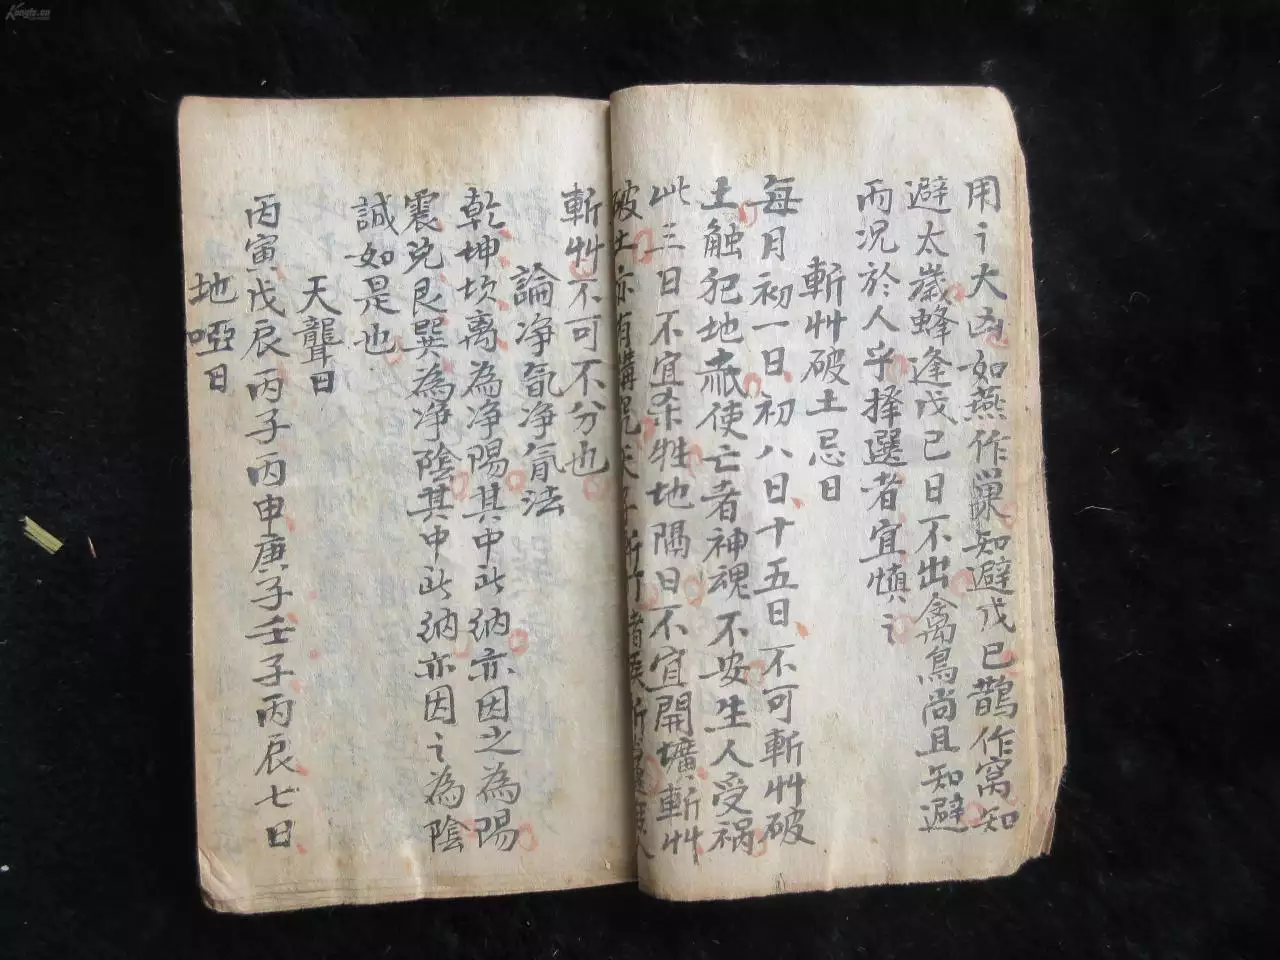 用之大凶如燕作巢知避戊己鵲作窩知
避太歲蜂逢戊己日不出禽鳥尚且知避
而况於人乎擇選者宜慎之
斬艸破土忌日
每月初一日初八日十五日不可斬艸破
土触犯地祇使亡者神魂不安生人受祸
此三日不宜杀牲地隔日不宜開壙斬艸
破土亦有
斬艸不可不分也
論净氣净隂法
乾坤坎离為净陽其中所納亦因之為陽
震兌艮巽為净陰其中所納亦因之為陰
誠如是也
天聾日
丙寅戊辰丙子丙申庚子壬子丙辰七日
地啞日